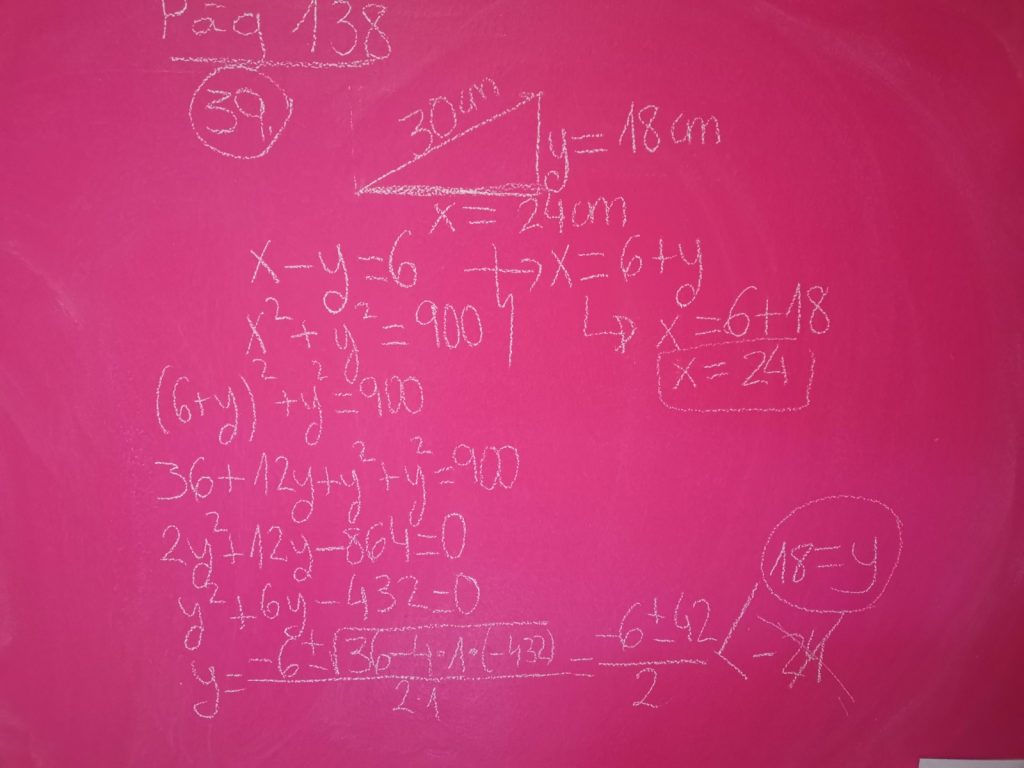 Pág 138
39
30 cm
y = 18 cm
x = 24 cm
x - y = 6 → x = 6 + y
x² + y² = 900 ↳ x = 6 + 18
x = 24
(6+y)² + y² = 900
36 + 12y + y² + y² = 900
2y² + 12y - 864 = 0
y² + 6y - 432 = 0
18 = y
y = (-6 ± √(36 - 4·1·(-432))) / 2·1 = (-6 ± 42) / 2
-24